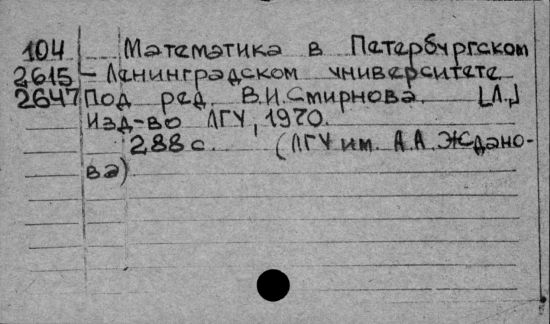 104 Математика в Петербургском
2615 - Ленинградском университете
2647 Под ред. В.И.Смирнова. [Л.]
Изд-во ЛГУ, 1970.
288 с. (ЛГУ им. А.А.Ждано-
ва)